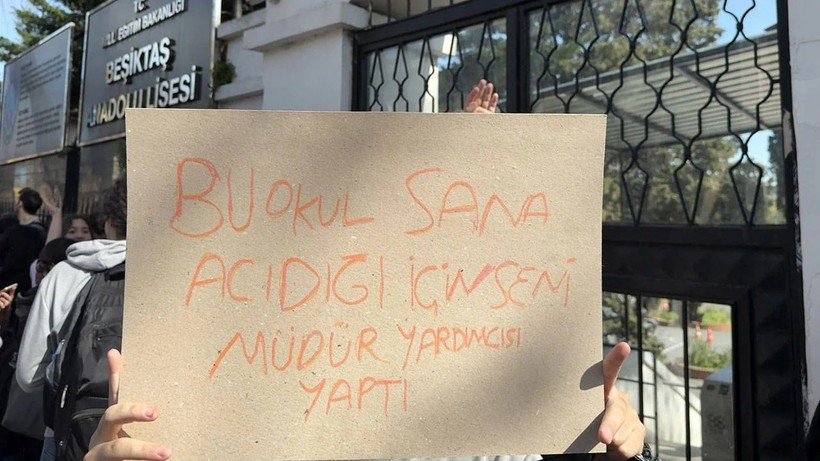 TC
MİLLİ EĞİTİM BAKANLIĞI
BEŞİKTAŞ
ANADOLU LİSESİ
BU OKUL SANA
ACIDIĞI İÇİN SENİ
MÜDÜR YARDIMCISI
YAPTI